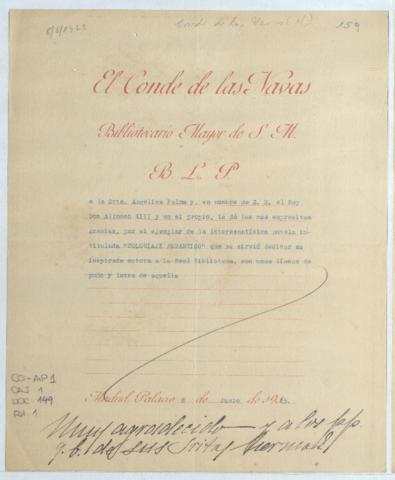 8/6/1923
Conde de las Navas
159
El Conde de las Navas
Bibliotecario Mayor de S. M.
B. L. P.
a la Srta. Angélica Palma y, en nombre de S. M. el Rey
Don Alfonso XIII y en el propio, le dá las más expresivas
gracias, por el ejemplar de la interesantísima novela in-
titulada "COLONIAJE ROMANTICO" que se sirvió dedicar su
inspirada autora a la Real Biblioteca, con unas líneas de
puño y letra de aquella
Madrid, Palacio 8 de Junio de 1923.
CO-AP1
CAJ 1
DOC 149
FU. 1
Muy agradecido y a los pp.
q. b. de sus Sritas Hermanas